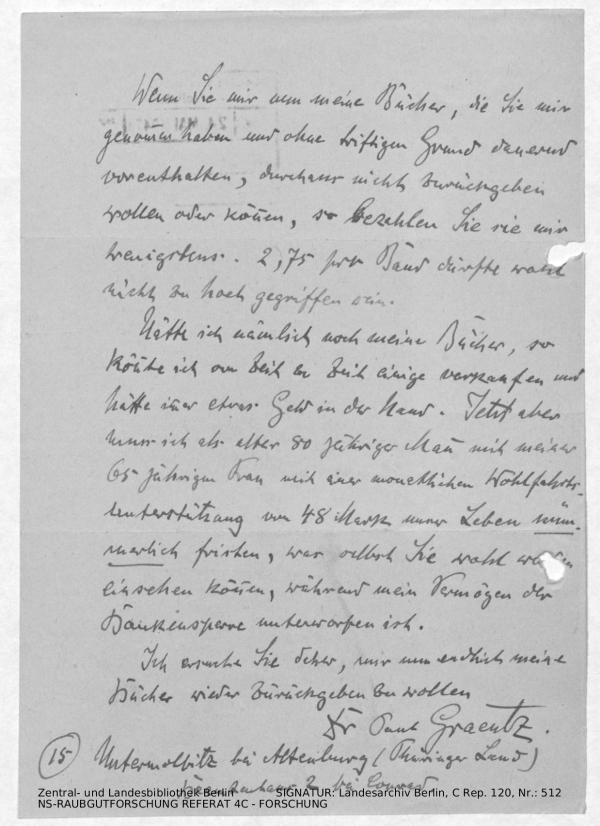 Wenn Sie mir nun meine Bücher, die Sie mir
genommen haben und ohne triftigen Grund dauernd
vorenthalten, durchaus nicht zurückgeben
wollen oder können, so bezahlen Sie sie mir
wenigstens. 2,75 pro Band dürfte wohl
nicht zu hoch gegriffen sein.
Hätte ich nämlich noch meine Bücher, so
könnte ich von Zeit zu Zeit einige verkaufen und
hätte immer etwas Geld in der Hand. Jetzt aber
muss ich als alter 80 jähriger Mann mit meiner
65 jährigen Frau mit einer monatlichen Wohlfahrts-
unterstützung von 48 Mark unser Leben küm-
merlich fristen, was selbst Sie wohl werden
einsehen können, während mein Vermögen der
Bankensperre unterworfen ist.
Ich ersuche Sie daher, mir nun endlich meine
Bücher wieder zurückgeben zu wollen
Dr Paul Graentz.
(15) Untermolbitz bei Altenburg (Thüringer Land)
2 bei Conrad
Zentral- und Landesbibliothek Berlin SIGNATUR: Landesarchiv Berlin, C Rep. 120, Nr.: 512
NS-RAUBGUTFORSCHUNG REFERAT 4C - FORSCHUNG